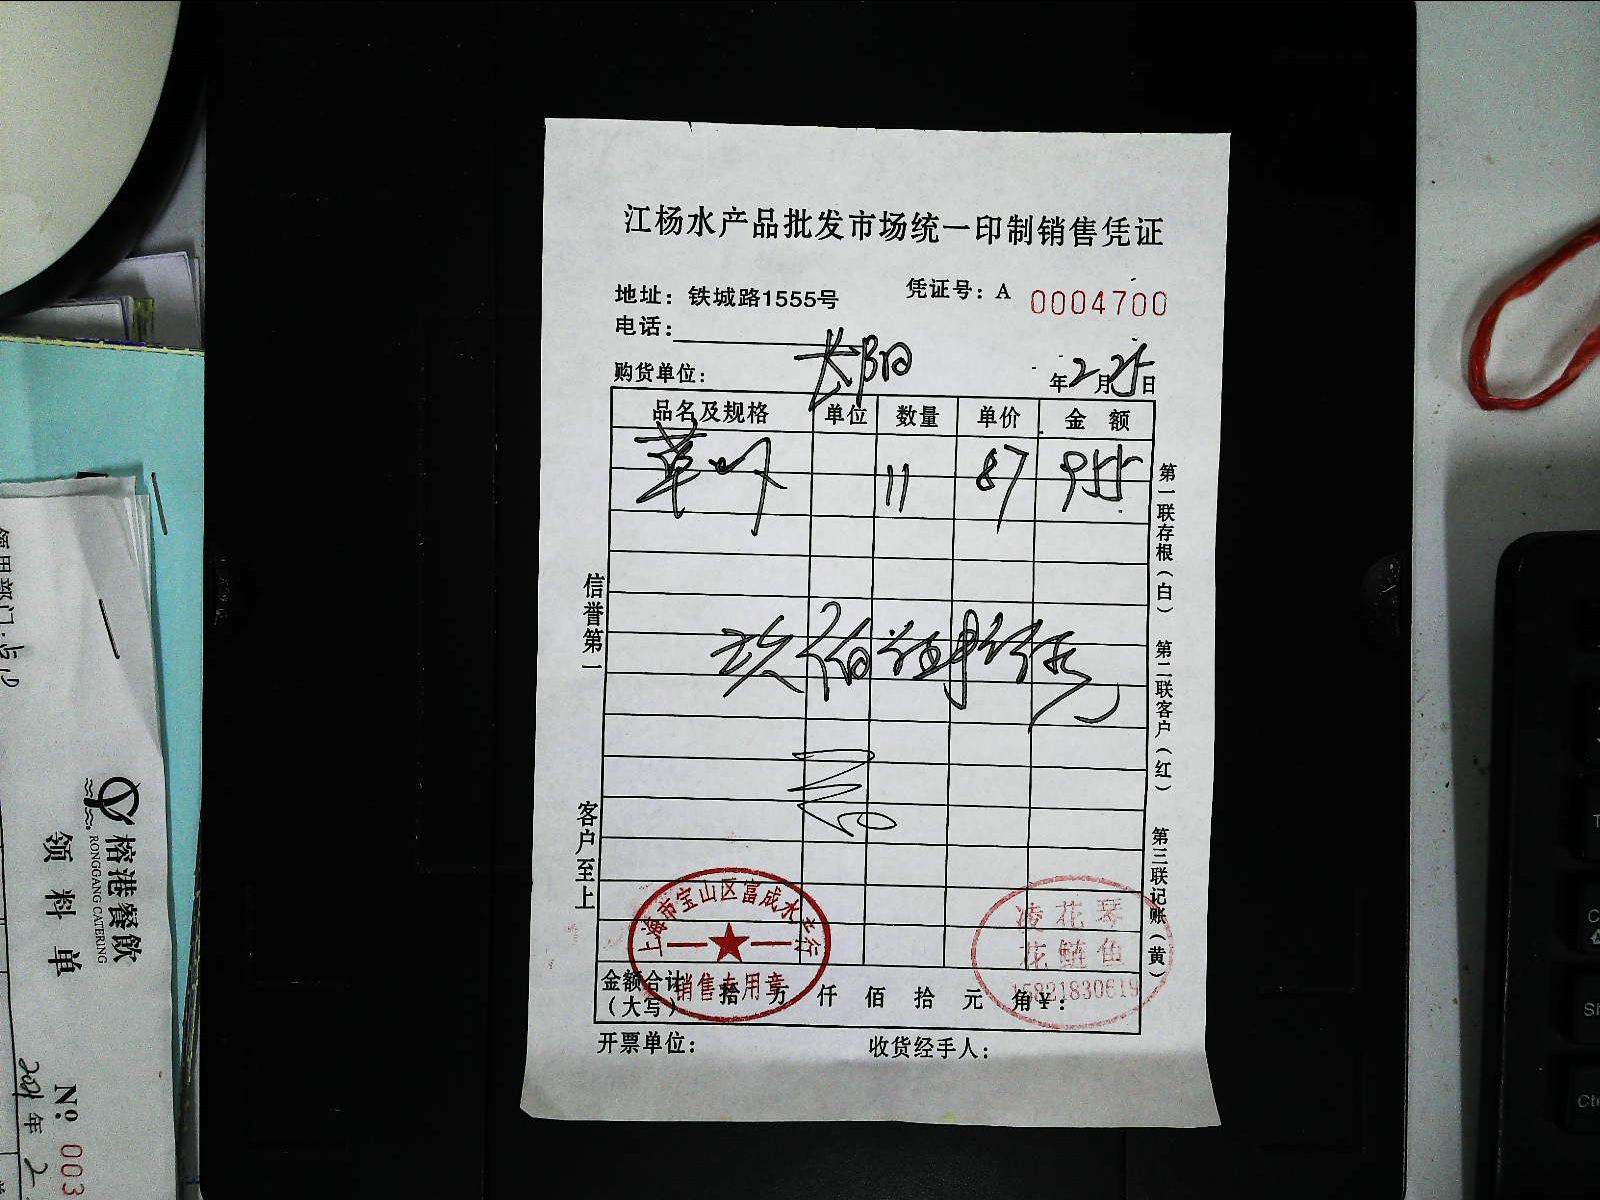 江杨水产品批发市场统一印制销售凭证
地址：铁城路1555号
凭证号：A 0004700
电话：
购货单位：
年2月25日
品名及规格 单位 数量 单价 金 额
11 87 955
玖佰
信誉第一
客户至上
第一联存根（白）
第二联客户（红）
第三联记账（黄）
上海市宝山区富成水产行
销售专用章
凌花琴
花鲢鱼
15821830619
金额合计（大写） 拾 万 仟 佰 拾 元 角 ¥：
开票单位：
收货经手人：
榕港餐飲
RONGGANG CATERING
领料单
No 003
2021年2